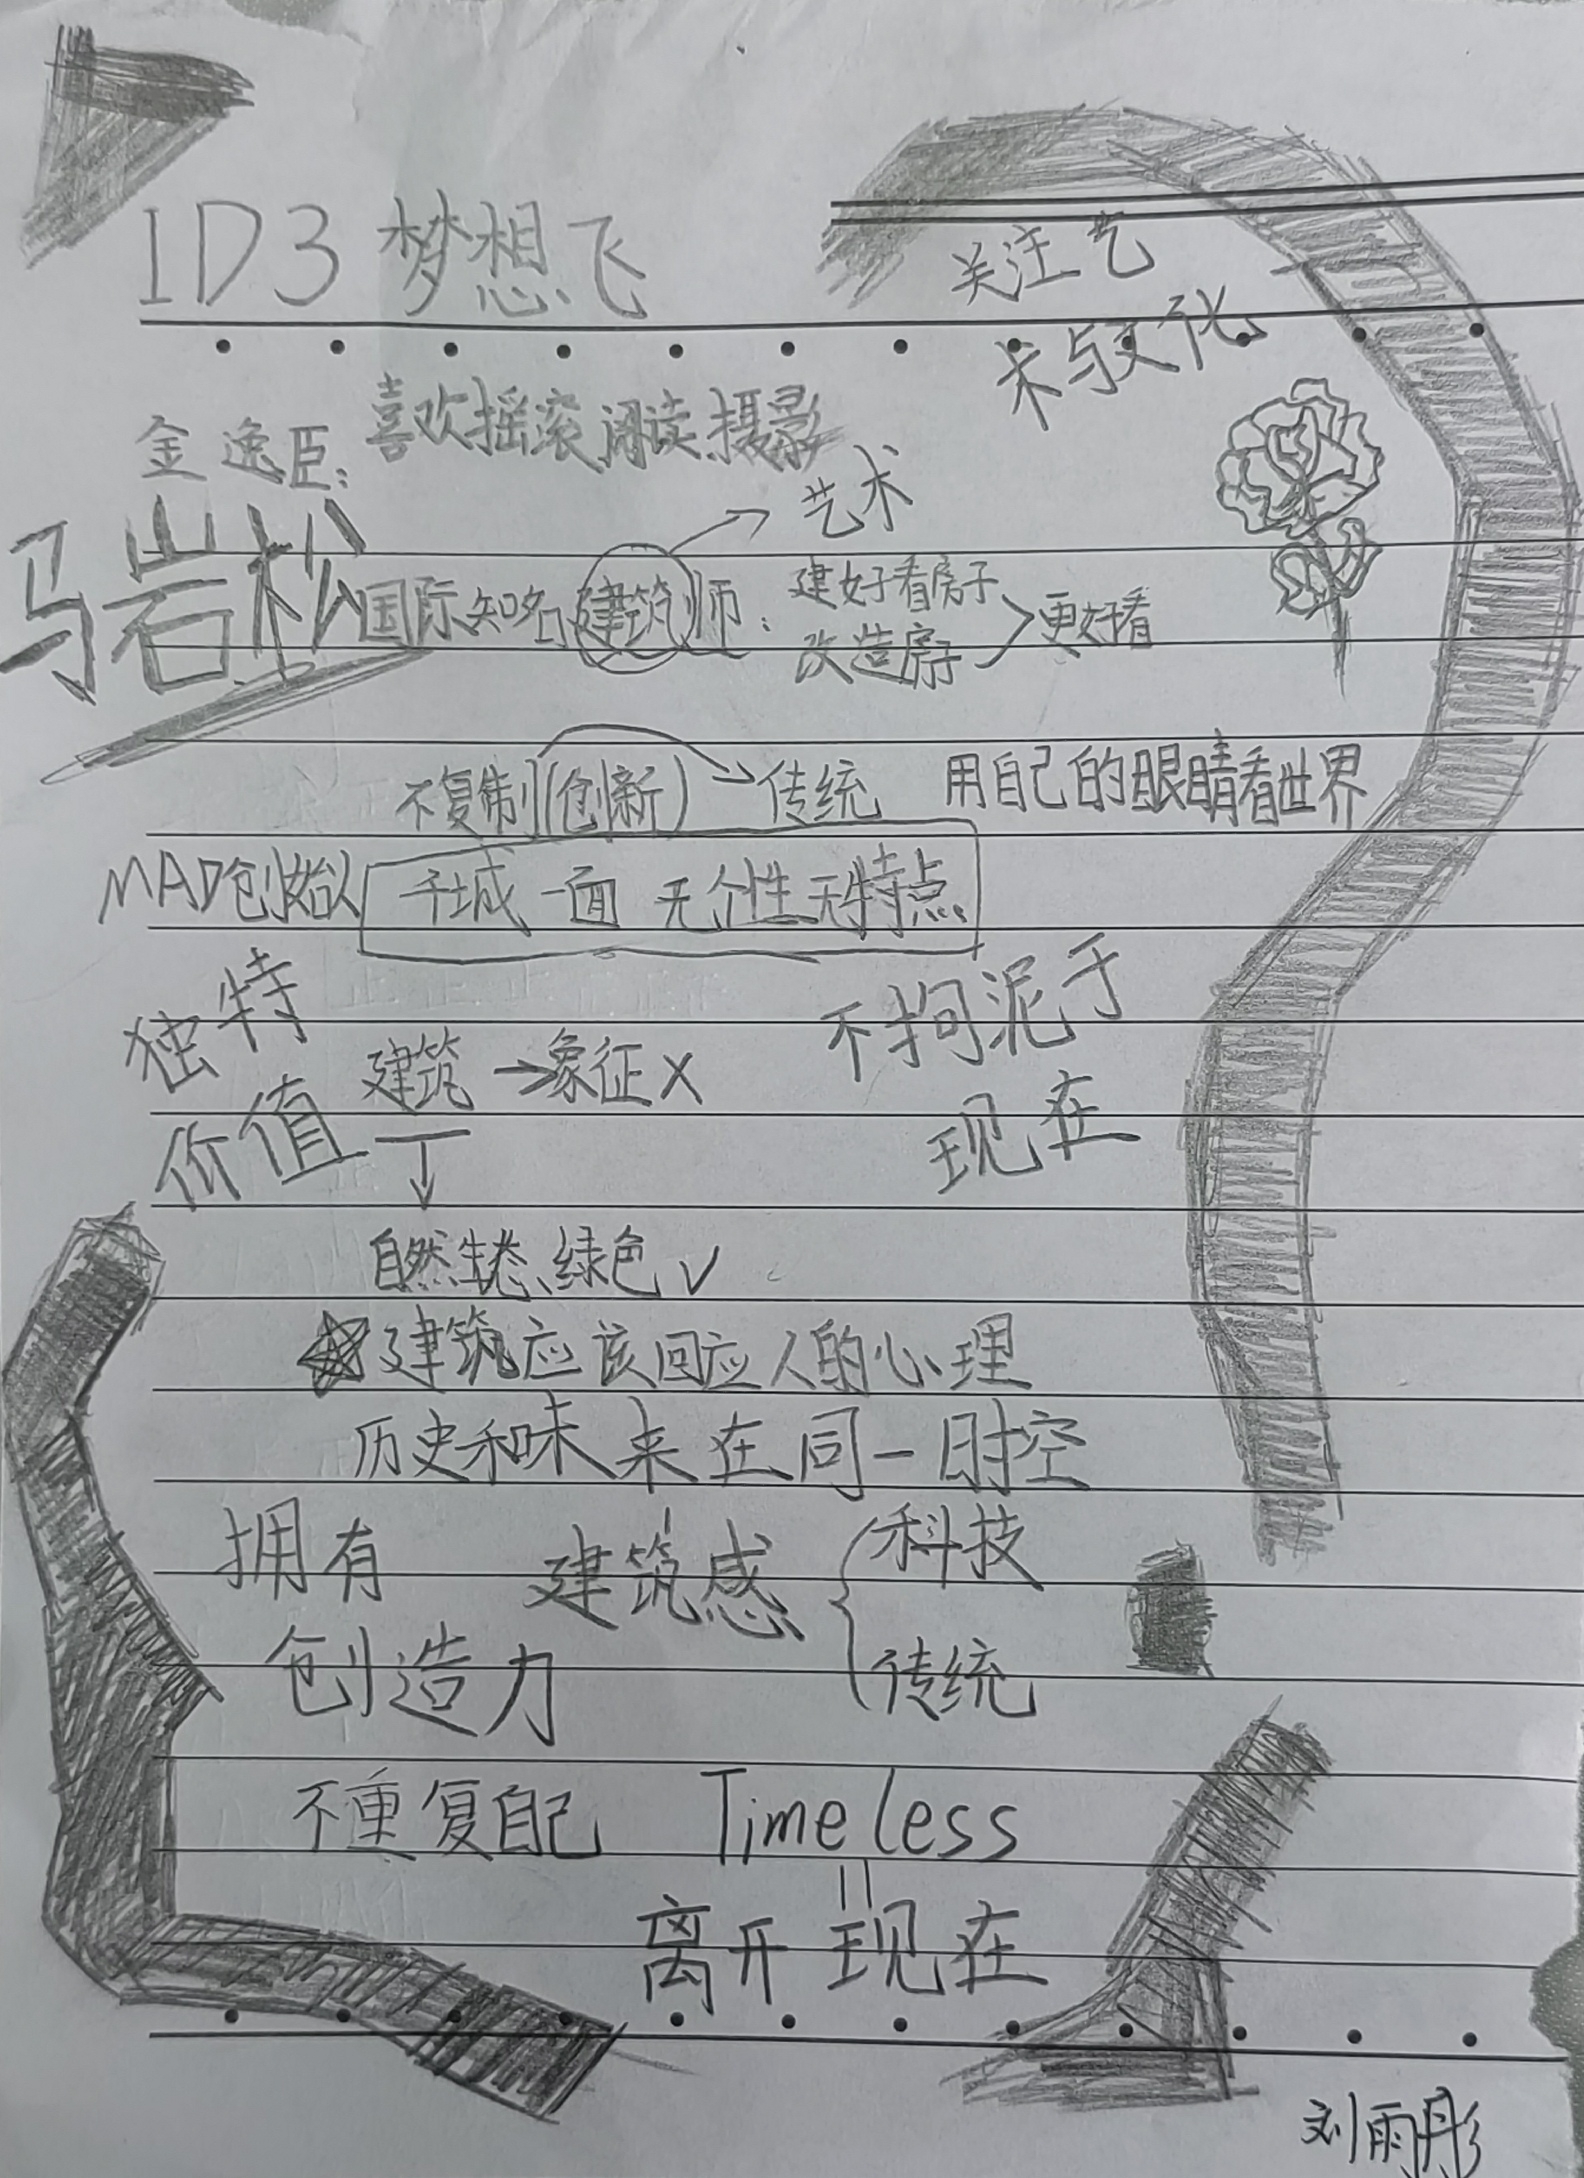 1D3 梦想飞
关注艺
术与文化
金逸臣: 喜欢摇滚 阅读 摄影
艺术
马岩松 国际知名建筑师: 建好看房子
改造房子
更好看
不复制(创新) 传统 用自己的眼睛看世界
MAD创始人 千城一面 无个性 无特点
独特
价值
不拘泥于
现在
建筑→象征×
自然生态、绿色√
建筑应该回应人的心理
历史和味来在同一时空
拥有
创造力
建筑感 科技
传统
不重复自己 Timeless
=
离开现在
刘雨彤